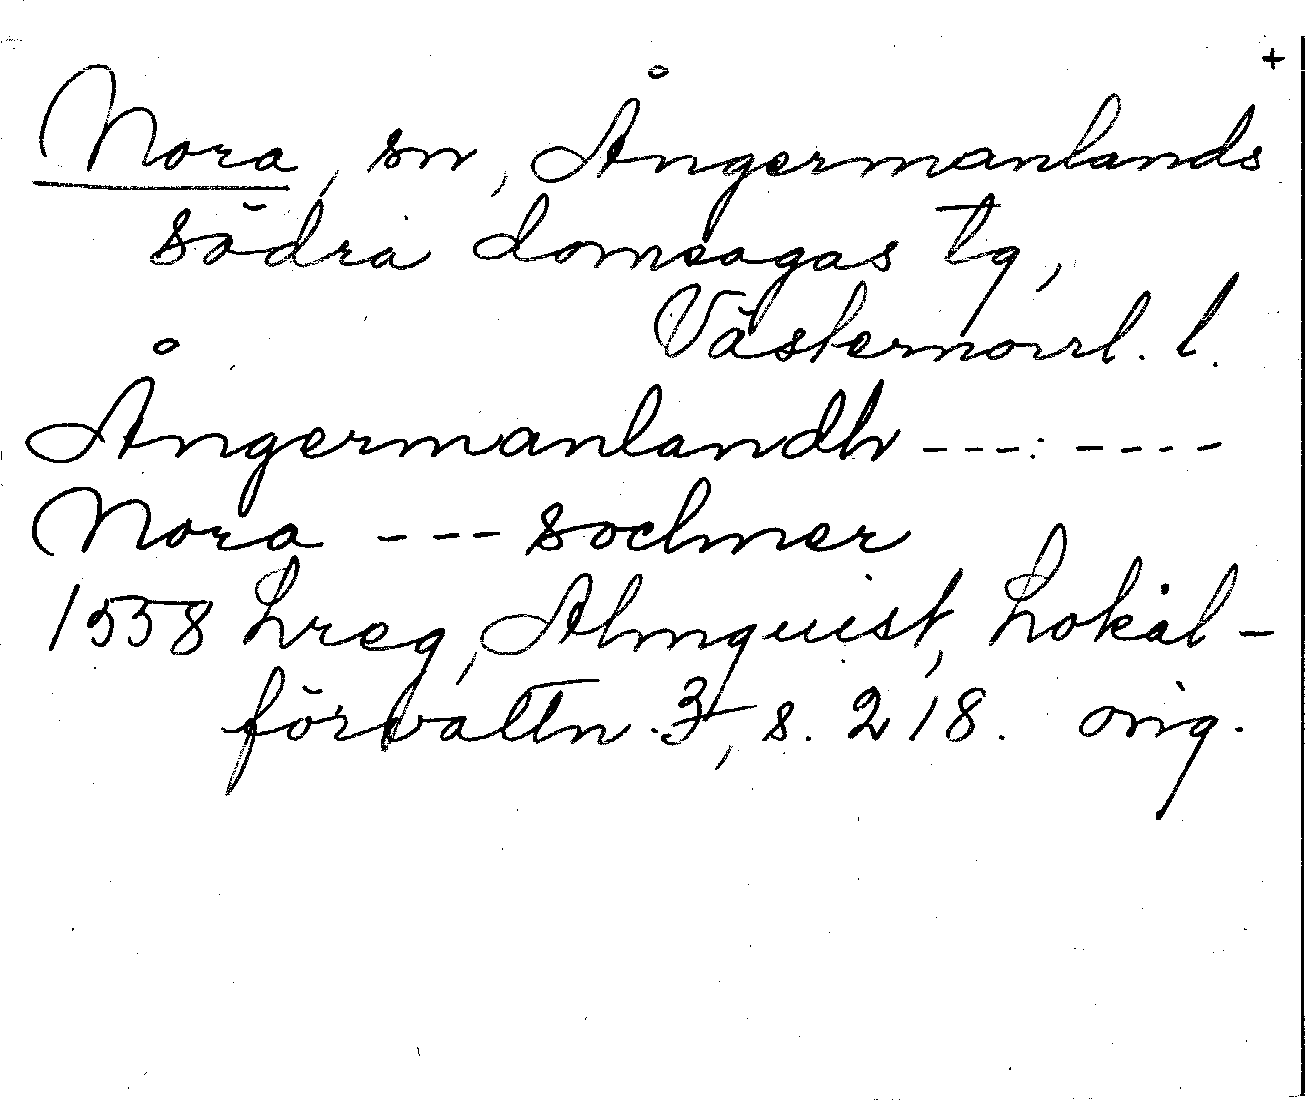 +
Nora, sn, Ångermanlands
södra domsagas tg,
Västernorrl. l.
Ångermanlandh ---- ----
Nora --- sochner
1558 Lreg, Almquist, Lokal-
förvaltn. 3, s. 218. orig.